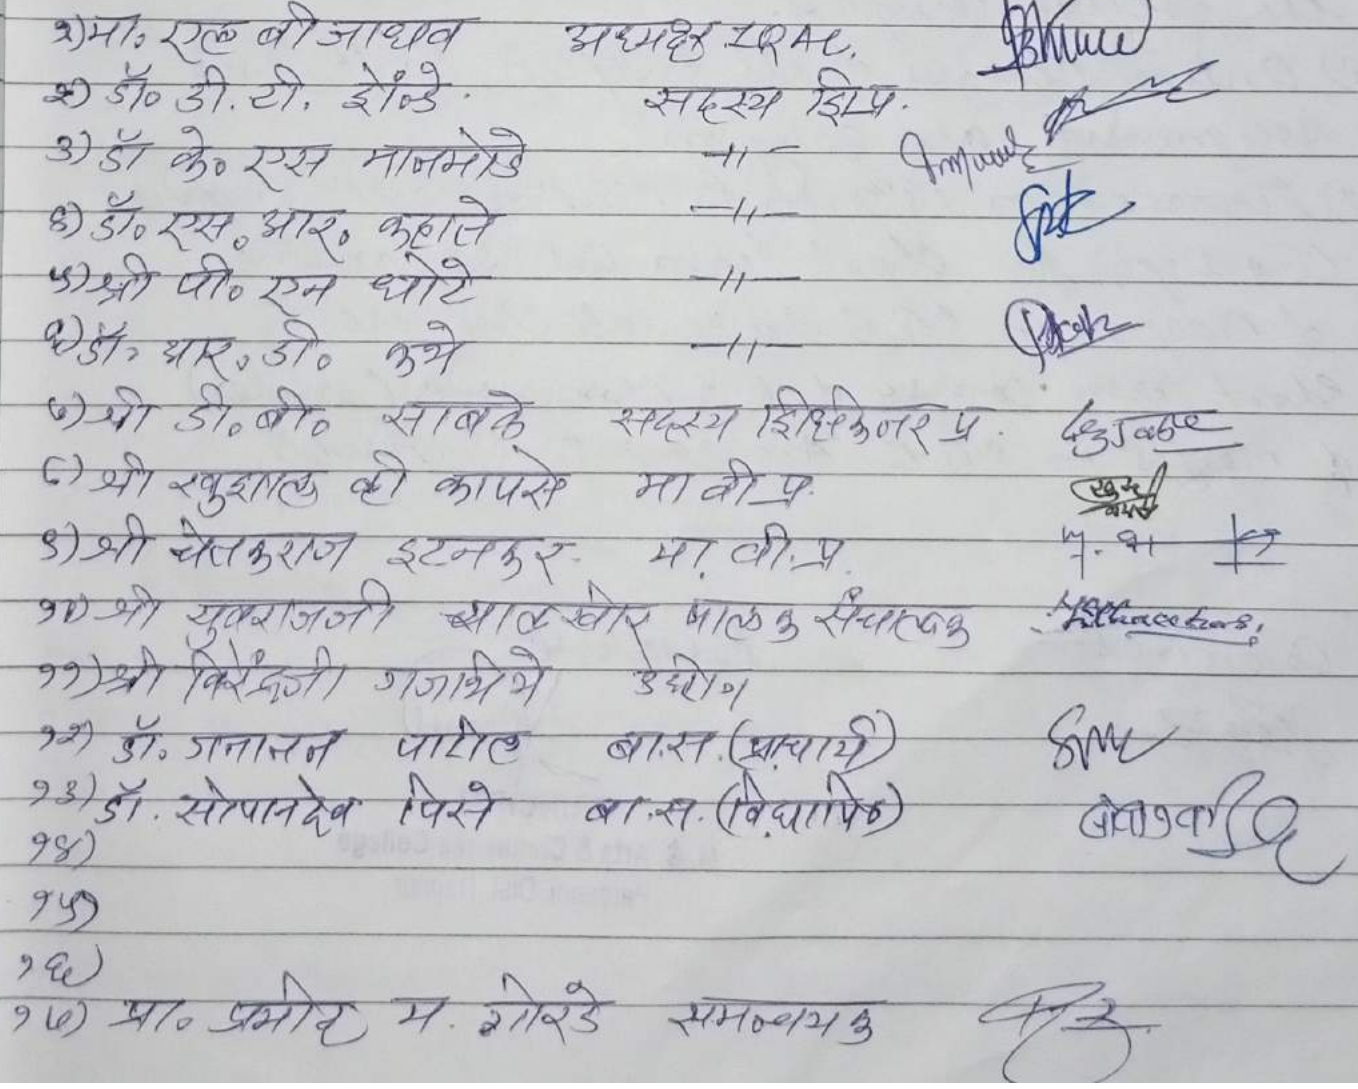 १) मा. एल बी जाधव अध्यक्ष IQAC.
२) डॉ. डी. टी. शेंन्डे. सदस्य शि.प्र.
३) डॉ के. एस मानमोडे -॥-
४) डॉ. एस. आर. कहाते -॥-
५) श्री पी. एन धोटे -॥-
६) डॉ. आर. डी. कथे -॥-
७) श्री डी. बी. साबके सदस्य शिक्षकेत्तर प्र.
८) श्री खुशाल व्ही कापसे मा वी प्र.
९) श्री चेतकराज इटनकर. मा. वी. प्र.
१०) श्री युवराजजी चालखोर पालक संचालक
११) श्री विरेंद्रजी गजभिये उद्योग
१२) डॉ. गजानन पाटील बा.स. (प्राचार्य)
१३) डॉ. सोपानदेव पिसे बा.स. (विद्यापिठ)
१४)
१५)
१६)
१७) प्रा. प्रमोद म. शोरडे समन्वयक